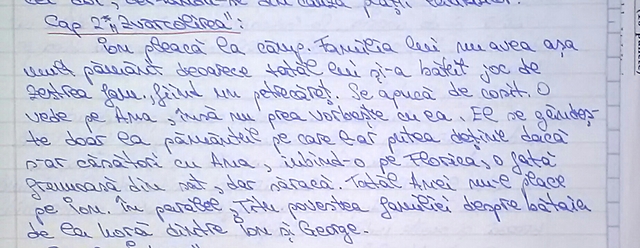 Cap 2 "Zvârcolirea":
Ion pleacă la câmp. Familia lui nu avea așa
mult pământ deoarece tatăl lui și-a bătut joc de
zestrea fam., fiind un petrecăreț. Se apucă de cosit. O
vede pe Ana, însă nu prea vorbește cu ea. El se gândeș-
te doar la pământul pe care l-ar putea deține dacă
s-ar căsători cu Ana, iubind-o pe Florica, o fată
frumoasă din sat, dar săracă. Tatăl Anei nu-l place
pe Ion. În paralel, Titu povestea familiei despre bătaia
de la horă dintre Ion și George.